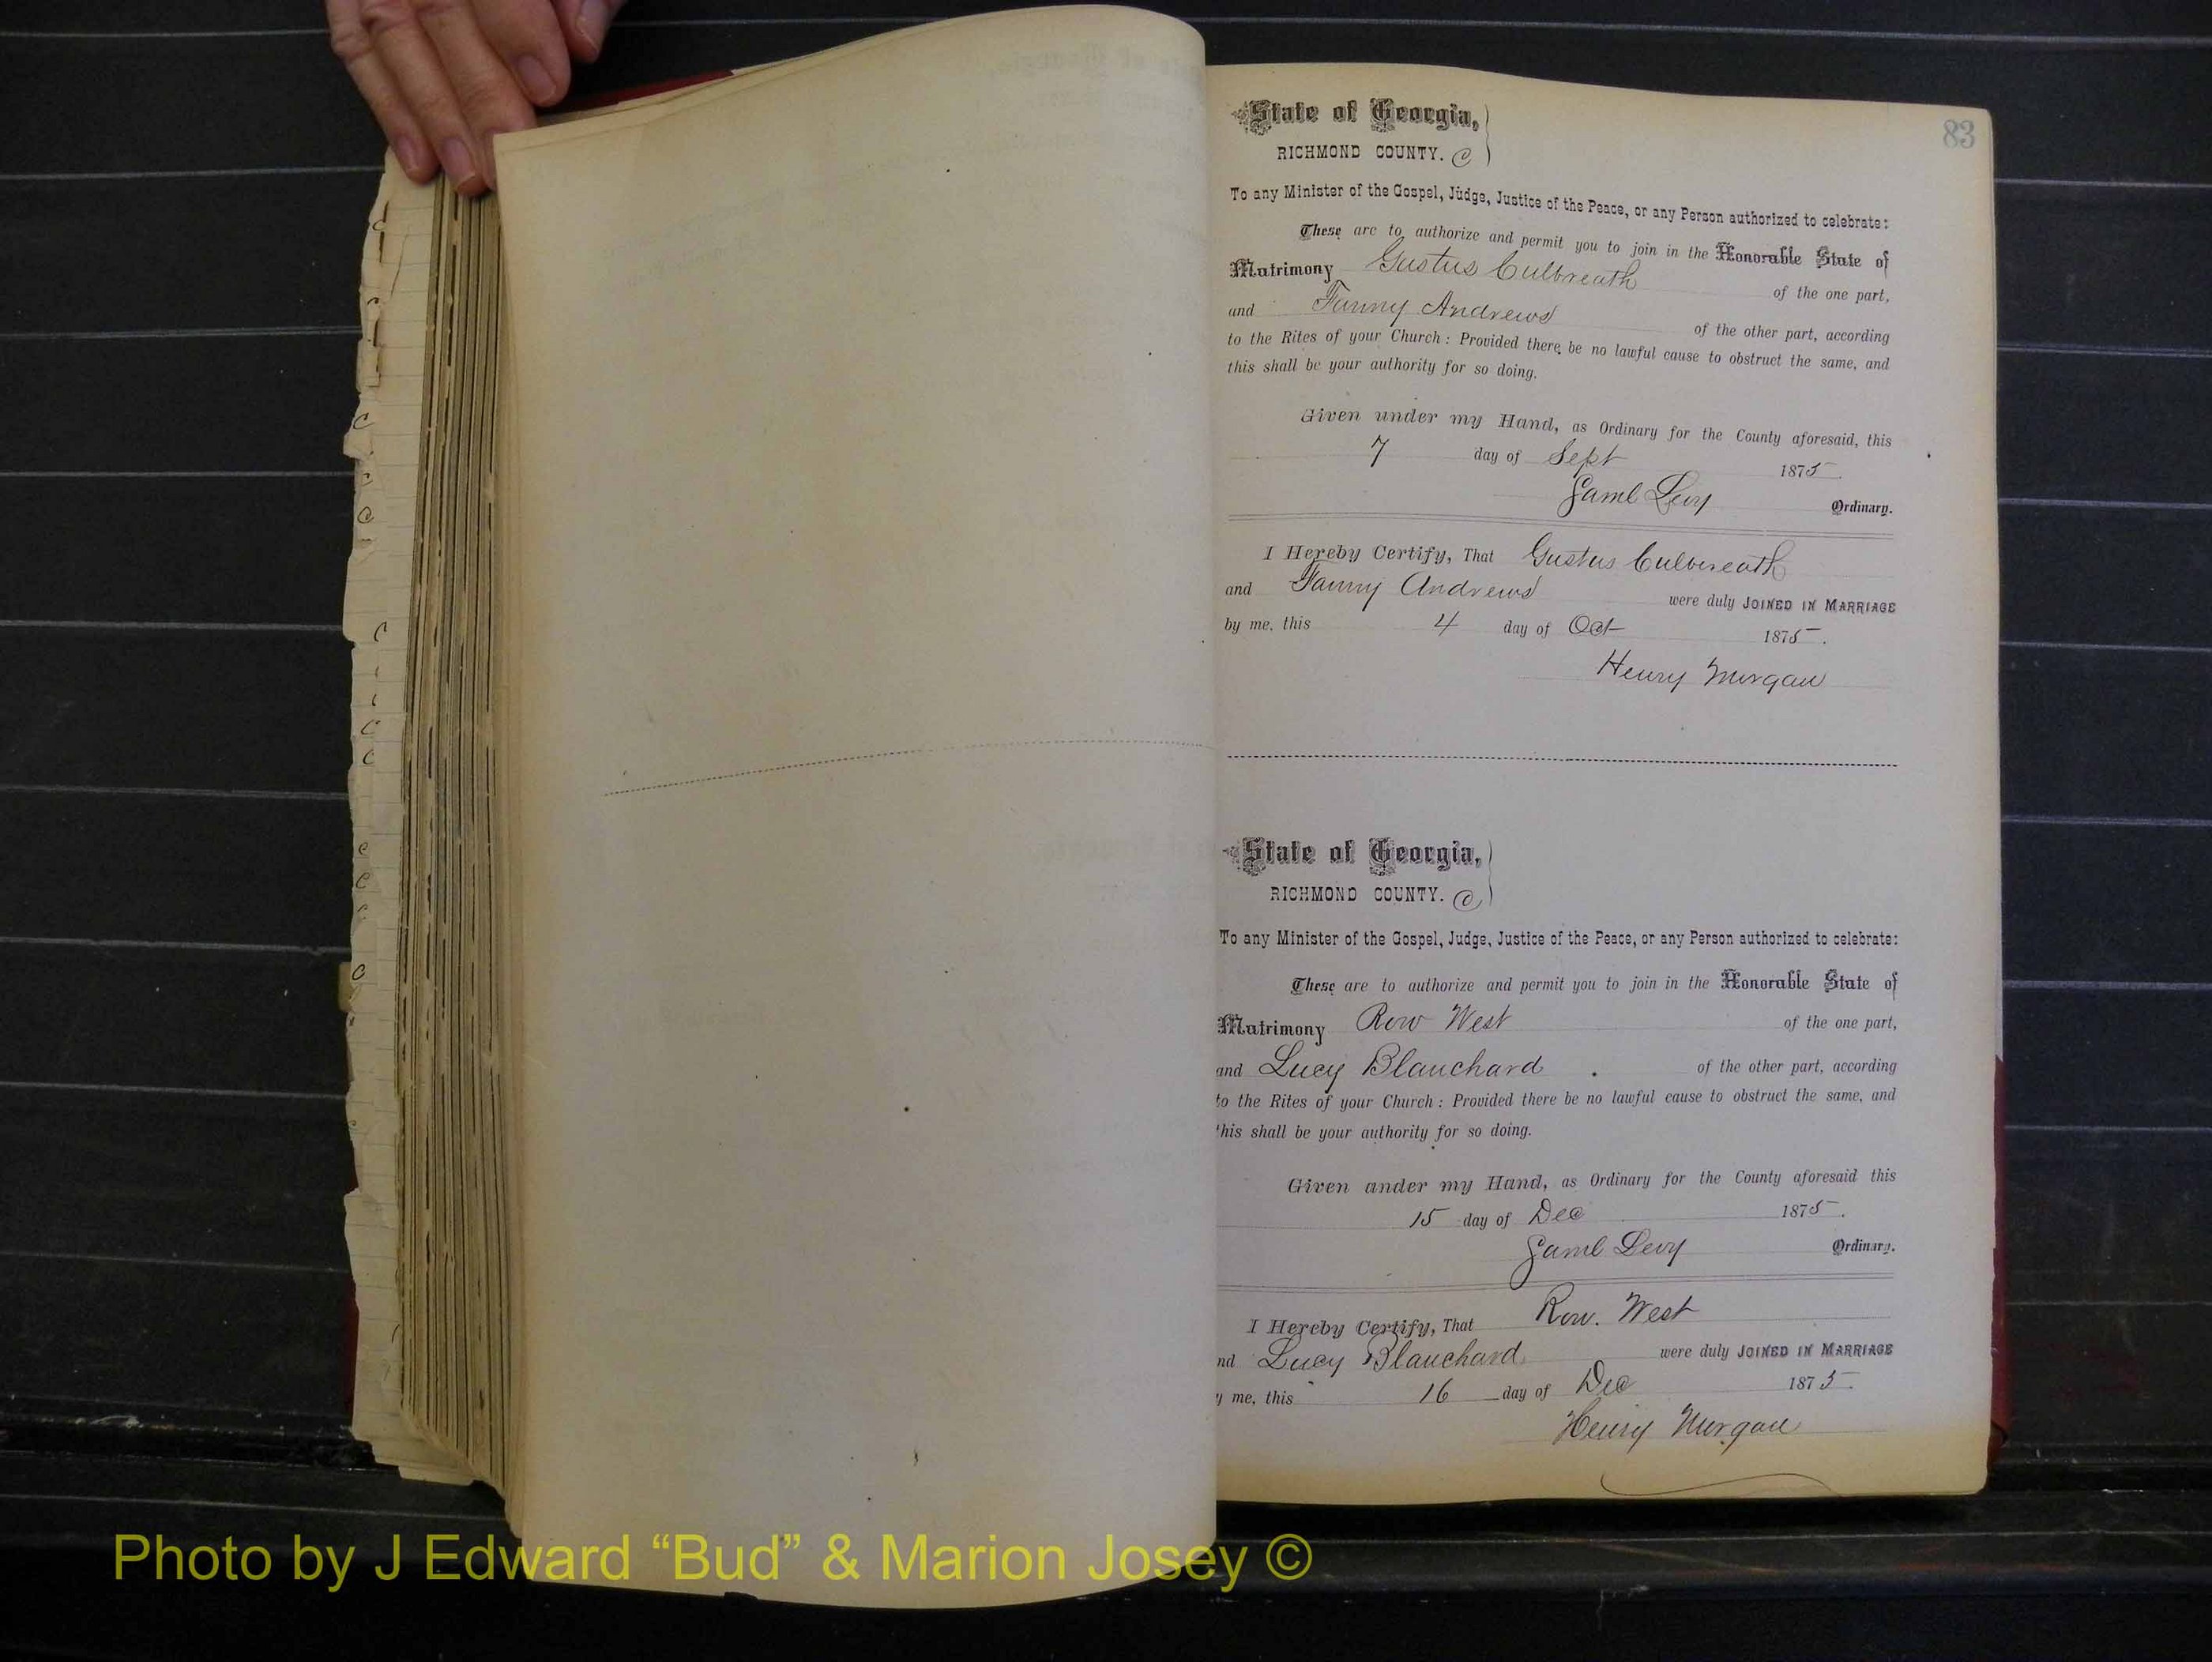 83
State of Georgia,
RICHMOND COUNTY. C
To any Minister of the Gospel, Judge, Justice of the Peace, or any Person authorized to celebrate:
These are to authorize and permit you to join in the Honorable State of
Matrimony Gustus Culbreath of the one part,
and Fanny Andrews of the other part, according
to the Rites of your Church: Provided there be no lawful cause to obstruct the same, and
this shall be your authority for so doing.
Given under my Hand, as Ordinary for the County aforesaid, this
7 day of Sept 1875
Saml Levy Ordinary.
I Hereby Certify, That Gustus Culbreath
and Fanny Andrews were duly JOINED IN MARRIAGE
by me, this 4 day of Oct 1875.
Henry Morgan
State of Georgia,
RICHMOND COUNTY. C
To any Minister of the Gospel, Judge, Justice of the Peace, or any Person authorized to celebrate:
These are to authorize and permit you to join in the Honorable State of
Matrimony Row West of the one part,
and Lucy Blanchard of the other part, according
to the Rites of your Church: Provided there be no lawful cause to obstruct the same, and
this shall be your authority for so doing.
Given under my Hand, as Ordinary for the County aforesaid this
15 day of Dec 1875.
Saml Levy Ordinary.
I Hereby Certify, That Row. West
nd Lucy Blanchard were duly JOINED IN MARRIAGE
y me, this 16 day of Dec 1875.
Henry Morgan
Photo by J Edward “Bud” & Marion Josey ©